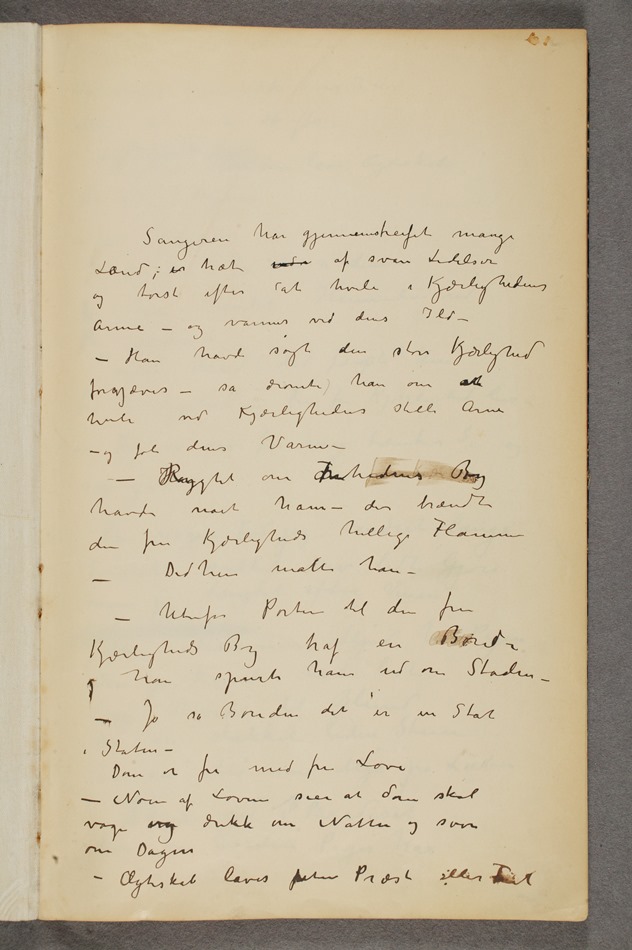 Sangeren har gjennemstreifet mange
Land; er træt af sven Lidelser
og tørst efter at hvile i Kjærlighedens
Arme – og varmes ved dens Ild –
– Han havde søgt den store Kjærlighed
forgjæves – så drømte han om at
hvile ved Kjærlighedens stille Arne
– og føle dens Varme –
– Rygtet om Frihedens By
havde nået ham – der brændte
den frie Kjærligheds hellige Flamme
– Didhen måtte han –
– Udenfor Porten til den frie
Kjærligheds By traf en Bonde
og han spurte ham ud om Staden –
– Jo sa Bonden det er en Stat
i Staten –
Dom er fri med frie Love
– Noen af Lovene sier at dom skal
våge og drikke om Natten og sove
om Dagen
– Ægteskab laves uten Præst eller